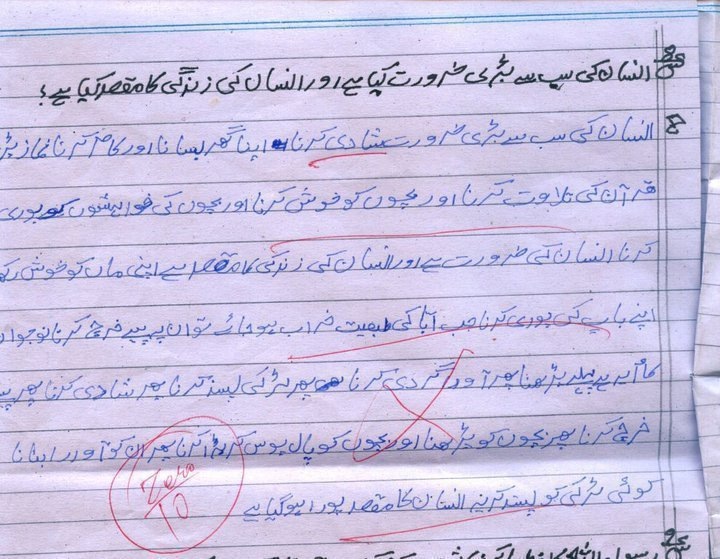 س انسان کی سب سے بڑی ضرورت کیا ہے اور انسان کی زندگی کا مقصد کیا ہے؟
ج انسان کی سب سے بڑی ضرورت شادی کرنا اپنا گھر بسانا اور کام کرنا نماز پڑ
قرآن کی تلاوت کرنا اور بچوں کو خوش کرنا اور بچوں کی خواہشوں کو پوری
کرنا انسان کی ضرورت ہے اور انسان کی زندگی کا مقصد ہے اپنی ماں کو خوش رکھ
اپنے باپ کی پوری کرنا جب آبا کی طبعیت خراب ہو جائے تو ان پر پیسہ خرچ کرنا نوجوان
کا پہلے پڑھنا پھر آوارگردی کرنا پھر لڑکی پسند کرنا پھر شادی کرنا پھر پیسہ
خرچ کرنا پھر بچوں کو پڑھنا اور بچوں کو پال پوس کر بڑا کرنا پھر ان کو آوارا بنانا
کوئی لڑکی کو پسند کرنے انسان کا مقصد پورا ہو گیا ہے
Zero
10
س